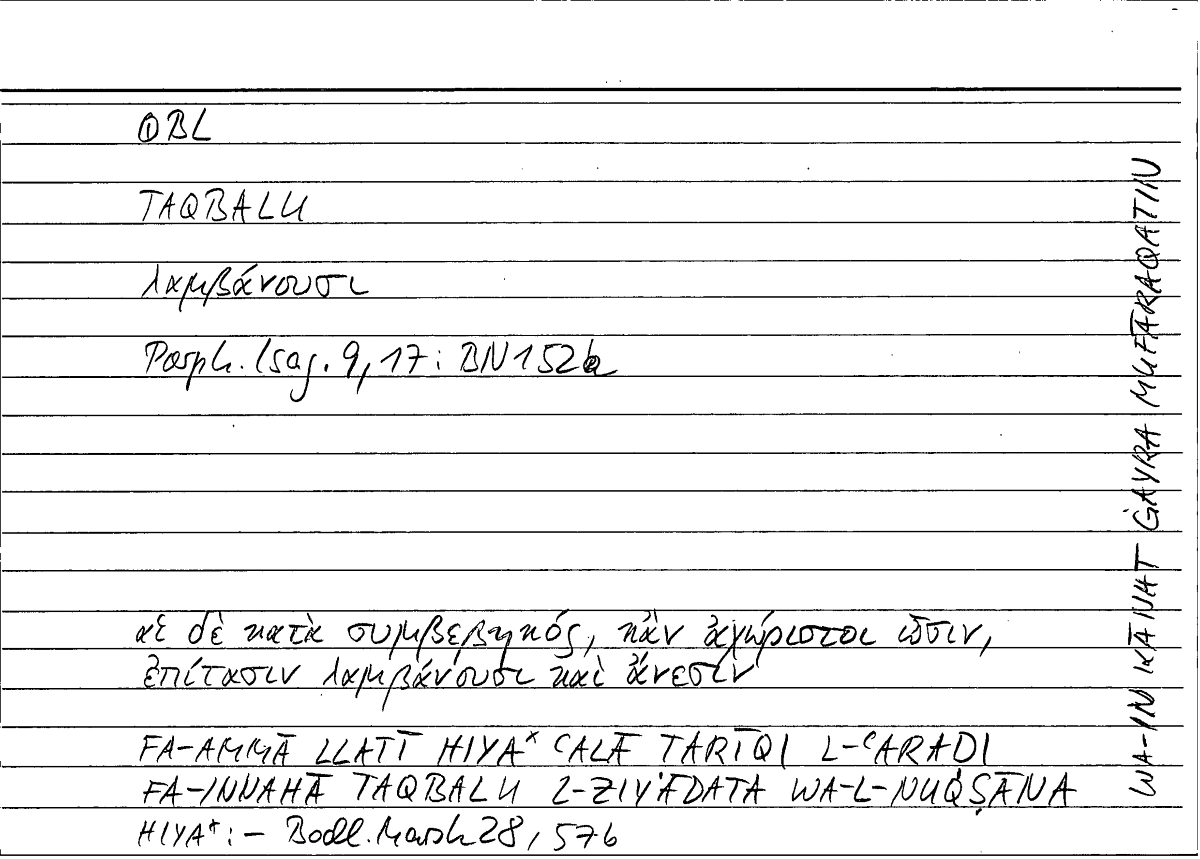 QBL
TAQBALU
λαμβάνουσι
Porph. Isag. 9, 17: BN 152a
αἱ δὲ κατὰ συμβεβηκός, κἂν ἀχώριστοι ὦσιν,
ἐπίτασιν λαμβάνουσι καὶ ἄνεσιν
FA-AMMĀ LLATĪ HIYA* ʿALĀ ṬARĪQI L-ʿARAḌI
FA-INNAHĀ TAQBALU Z-ZIYĀDATA WA-L-NUQṢĀNA
HIYA*: – Bodl. Marsh 28, 57b
WA-IN KĀNAT ĠAYRA MUFĀRAQATIN